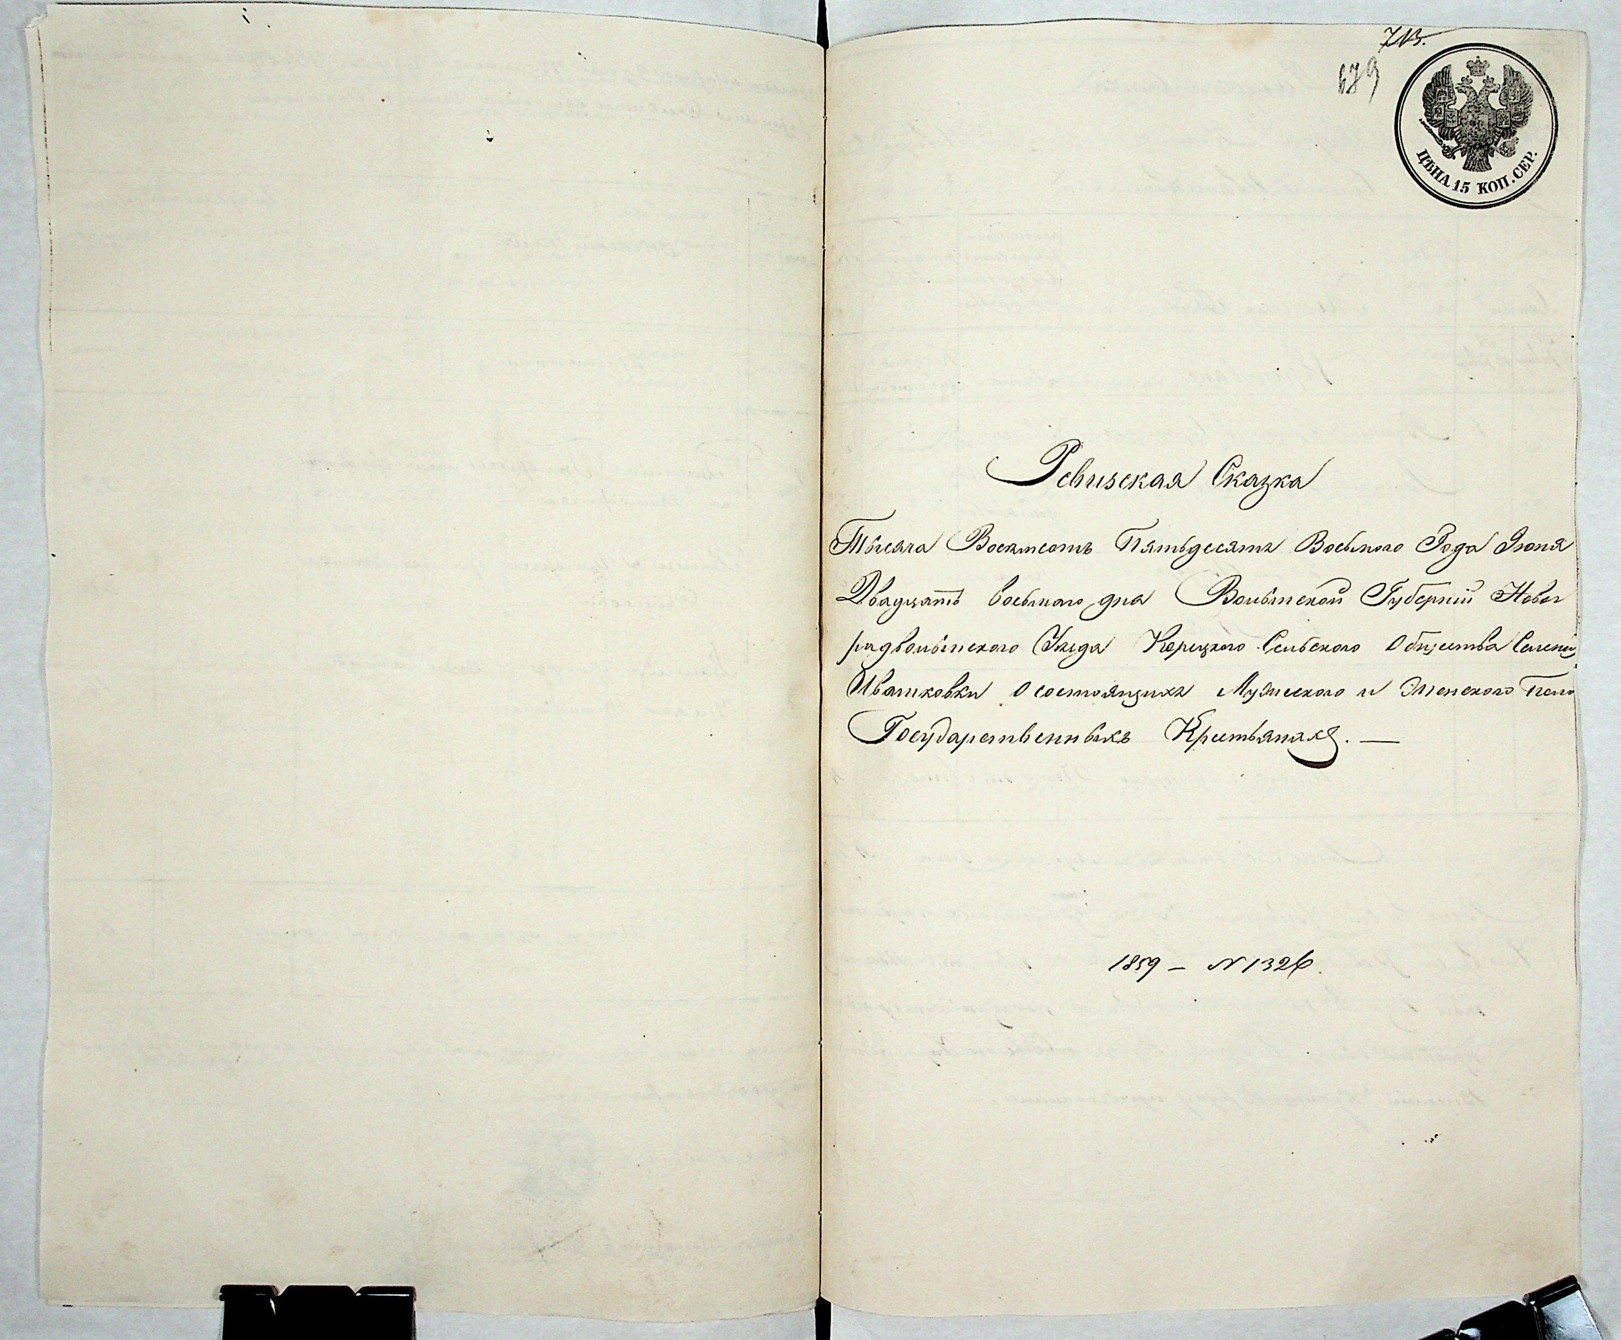 713.
679
ЦѢНА 15 КОП. СЕР.
Ревизская Сказка
Тысяча Восемсотъ Пятьдесятъ Восьмого Года Іюня
Двадцать восьмаго дня Волынской Губерніи Новог
радволынского Уѣзда Корецкого Сельского Общества Селенія
Ивашковки о состоящихъ Мужеского и Женского Пола
Государственныхъ Крестьянахъ. —
1859 — N 1326.